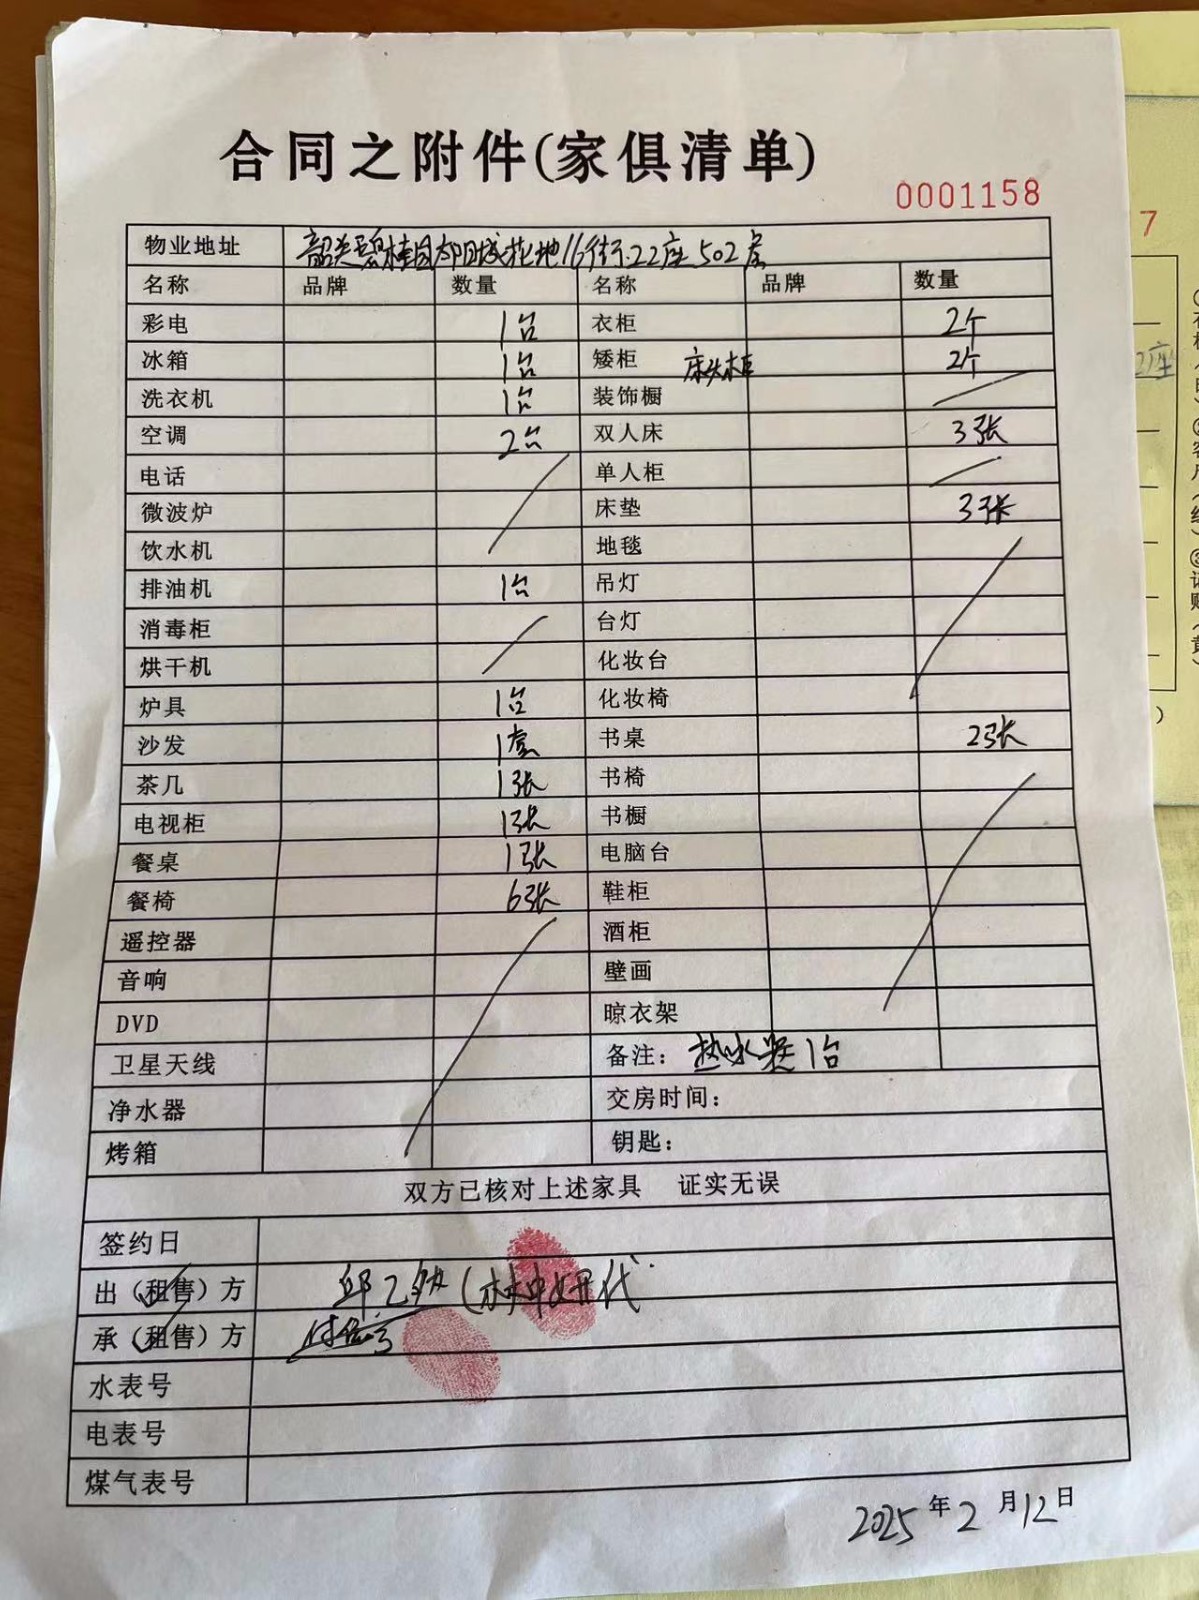 合同之附件(家俱清单)
0001158
物业地址 韶关碧桂园太阳城花地16街22座502房
名称 品牌 数量 名称 品牌 数量
彩电 1台 衣柜 2个
冰箱 1台 矮柜 床头柜 2个
洗衣机 1台 装饰橱
空调 2台 双人床 3张
电话 单人柜
微波炉 床垫 3张
饮水机 地毯
排油机 1台 吊灯
消毒柜 台灯
烘干机 化妆台
炉具 1台 化妆椅
沙发 1套 书桌 2张
茶几 1张 书椅
电视柜 1张 书橱
餐桌 1张 电脑台
餐椅 6张 鞋柜
遥控器 酒柜
音响 壁画
DVD 晾衣架
卫星天线 备注: 热水器1台
净水器 交房时间:
烤箱 钥匙:
双方已核对上述家具 证实无误
签约日
出(租售)方
承(租售)方
水表号
电表号
煤气表号
2025年2月12日
7